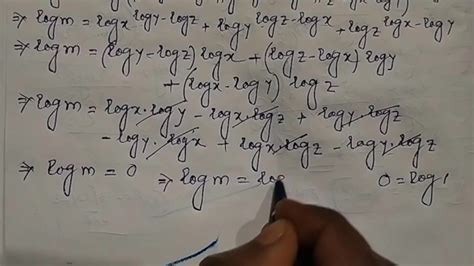 ⇒ logm = logx^(logy-logz) + logy^(logz-logx) + logz^(logx-logy)
⇒ logm = (logy-logz) logx + (logz-logx) logy
+ (logx-logy) logz
⇒ logm = logx·logy - logx·logz + logy·logz
- logy·logx + logx·logz - logy·logz
⇒ logm = 0 ⇒ logm = lo 0 = log1